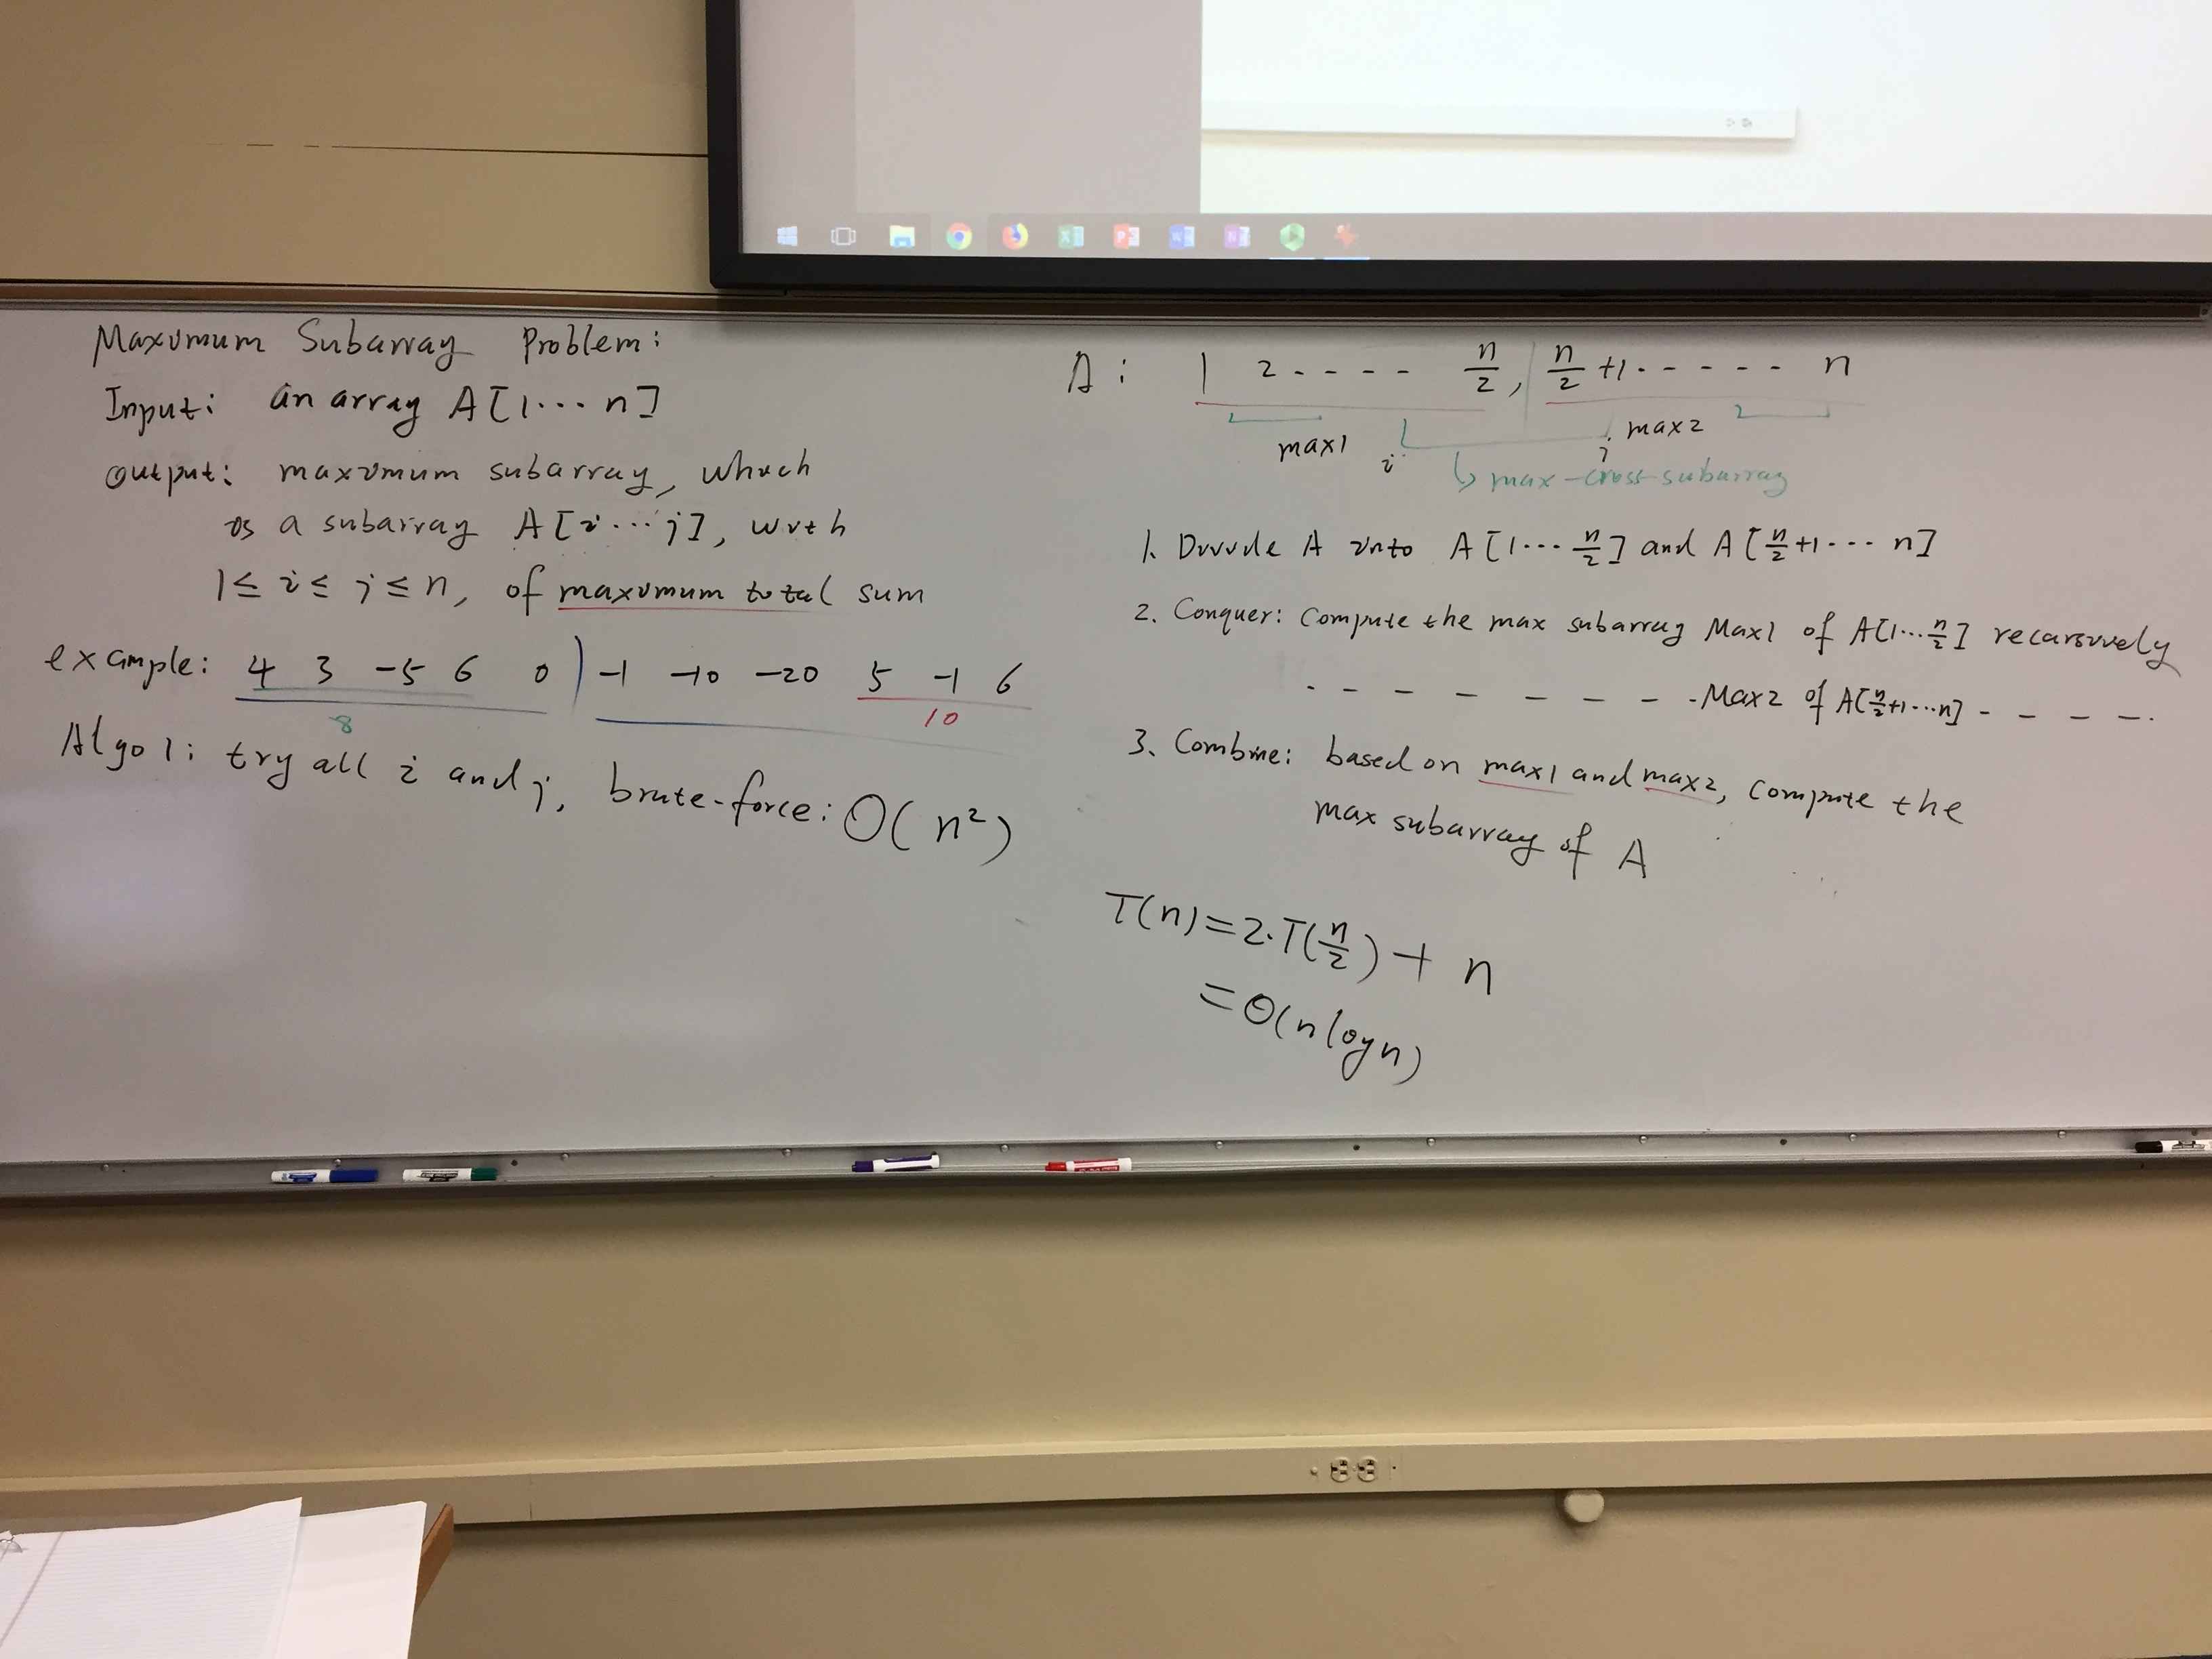 Maximum Subarray Problem:
Input: an array A[1··· n]
output: maximum subarray, which
is a subarray A[i ··· j], with
1 ≤ i ≤ j ≤ n, of maximum total sum
example: 4 3 -5 6 0 | -1 -10 -20 5 -1 6
8 10
Algo 1: try all i and j, brute-force: O(n²)
A: 1 2 - - - - n/2, n/2 +1 - - - - - n
max1 i j max2
↳ max-cross-subarray
1. Divide A into A[1··· n/2] and A[n/2+1··· n]
2. Conquer: Compute the max subarray Max1 of A[1···n/2] recursively
- - - - - - - - Max2 of A[n/2+1···n] - - - - -.
3. Combine: based on max1 and max2, compute the
max subarray of A
T(n) = 2·T(n/2) + n
= Θ(n log n)